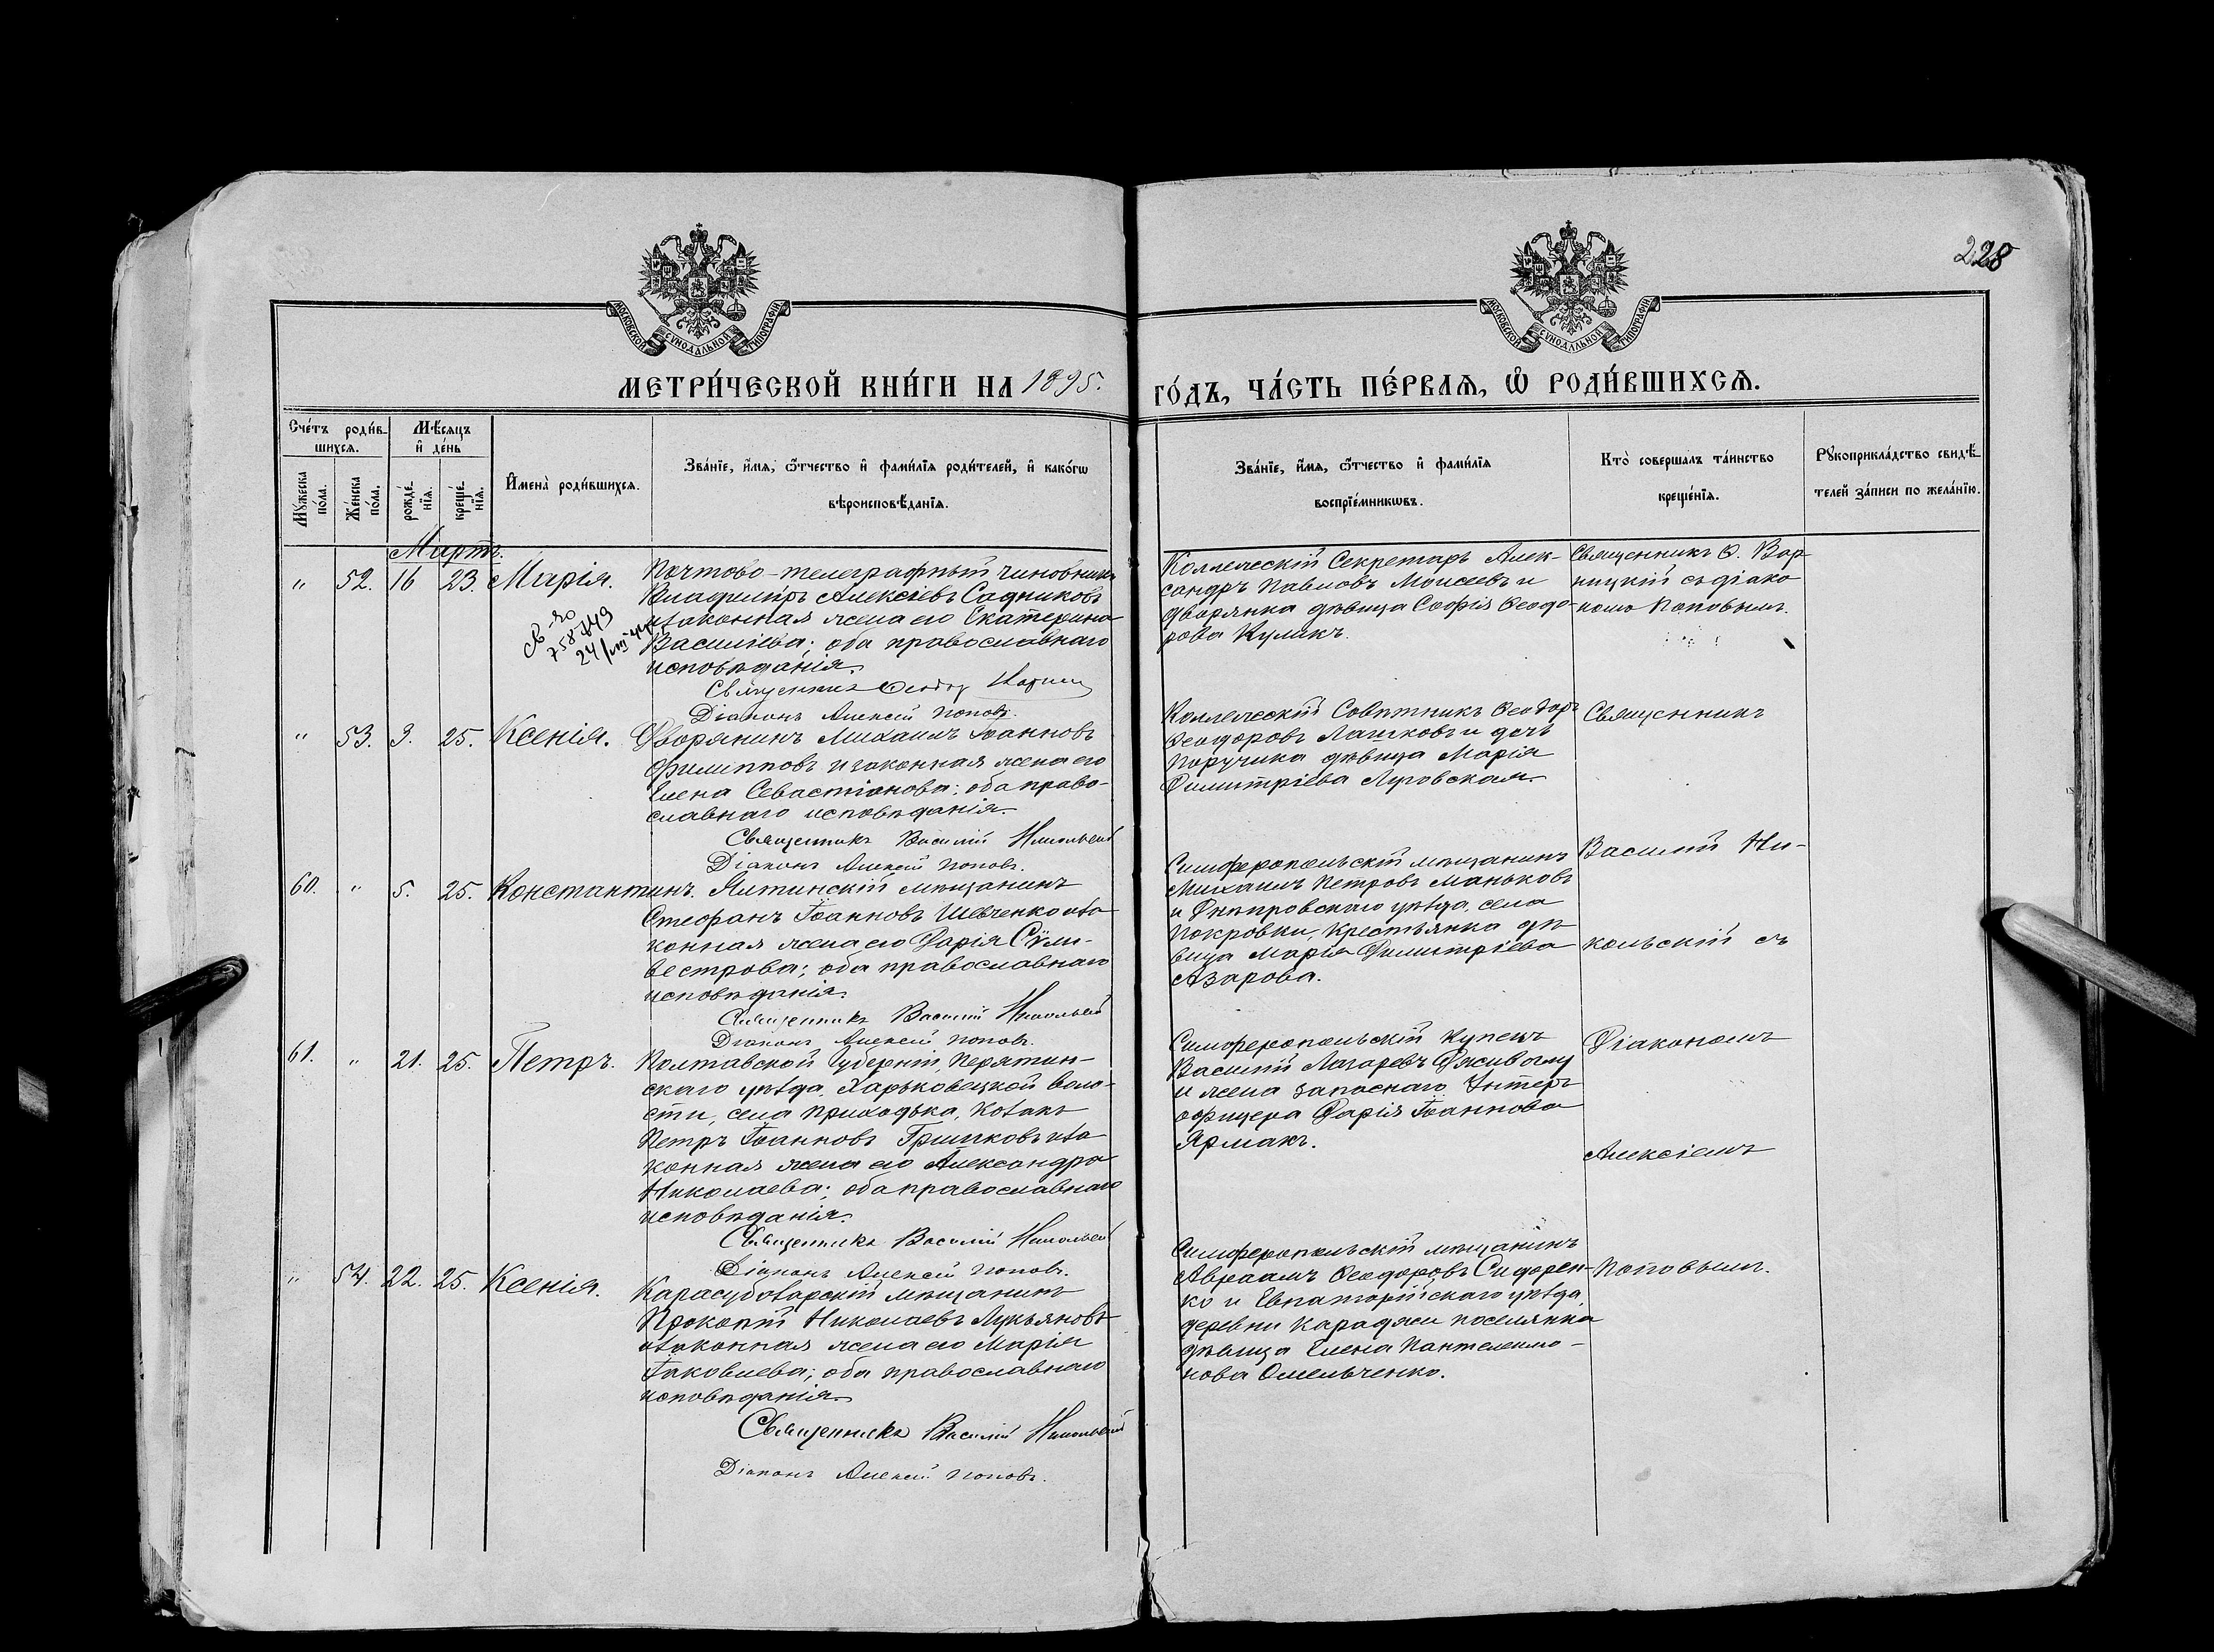 228
МОСКОВСКОЙ СѴНОДАЛЬНОЙ ТИПОГРАФІИ
МОСКОВСКОЙ СѴНОДАЛЬНОЙ ТИПОГРАФІИ
МЕТРИ́ЧЕСКОЙ КНИ́ГИ НА 1895.
ГО́ДЪ, ЧА́СТЬ ПЕ́РВАѦ, Ѡ РОДИ́ВШИХСѦ.
Сче́тъ роди́в-
шихсѧ.
Мѣ́сѧцъ
и҆ де́нь
Мꙋ́жеска по́ла.
Же́нска по́ла.
рожде́-
нїѧ.
креще́-
нїѧ.
И҆мена̀ роди́вшихсѧ.
Зва́нїе, и҆́мѧ, ѻ҆́тчество и҆ фами́лїѧ роди́телей, и҆ како́гѡ
вѣроисповѣ́данїѧ.
Зва́нїе, и҆́мѧ, ѻ҆́тчество и҆ фами́лїѧ
воспрїе́мникѡвъ.
Кто̀ соверша́лъ та́инство
креще́нїѧ.
Рꙋкоприкла́дство свидѣ́-
телей за́писи по жела́нїю.
Мартъ.
" 52. 16 23. Марія.
Почтово-телеграфный чиновникъ
Владиміръ Алексіевъ Садниковъ
и законная жена его Екатерина
Василіева; оба православнаго
исповѣданія.
Священникъ Ѳеодоръ
Діаконъ Алексій Поповъ.
св-во
758449
Коллежскій Секретарь Алек-
сандръ Павловъ Моисеевъ и
дворянка дѣвица Софія Ѳеодо-
рова Кулакъ.
Священникъ Ѳ. Вар-
ницкій съ діако-
номъ Поповымъ.
" 53. 3. 25. Ксенія.
Дворянинъ Михаилъ Іоанновъ
Филипповъ и законная жена его
Елена Севастіанова; оба право-
славнаго исповѣданія.
Священникъ Василій Никольскій
Діаконъ Алексій Поповъ.
Коллежскій Совѣтникъ Ѳеодоръ
Ѳеодоровъ Лашковъ и дочь
поручика дѣвица Марія
Димитріева Луговская.
Священникъ
60. " 5. 25. Константинъ.
Ялтинскій мѣщанинъ
Стефанъ Іоанновъ Шевченко и за-
конная жена его Дарія Сѵль-
вестрова; оба православнаго
исповѣданія.
Священникъ Василій Никольскій
Діаконъ Алексій Поповъ.
Симферопольскій мѣщанинъ
Михаилъ Петровъ Маньковъ
и Днѣпровскаго уѣзда, села
Покровки, крестьянка дѣ-
вица Марія Димитріева
Азарова.
Василій Ни-
кольскій съ
61. " 21. 25. Петръ.
Полтавской губерніи, Пирятин-
скаго уѣзда, Харьковецкой воло-
сти, села Приходька, козакъ
Петръ Іоанновъ Гришковъ и за-
конная жена его Александра
Николаева; оба православнаго
исповѣданія.
Священникъ Василій Никольскій
Діаконъ Алексій Поповъ.
Симферопольскій купецъ
Василій Лазаревъ
и жена запаснаго Унтеръ
офицера Дарія Іоаннова
Ярмакъ.
Діакономъ
Алексіемъ
" 54. 22. 25. Ксенія.
Карасубазарскій мѣщанинъ
Прокопій Николаевъ Лукьяновъ
и законная жена его Марія
Іаковлева; оба православнаго
исповѣданія.
Священникъ Василій Никольскій
Діаконъ Алексій Поповъ.
Симферопольскій мѣщанинъ
Авраамъ Ѳеодоровъ Сидорен-
ко и Евпаторійскаго уѣзда,
деревни Караджи поселянка
дѣвица Елена Пантелеимо-
нова Омельченко.
Поповымъ.